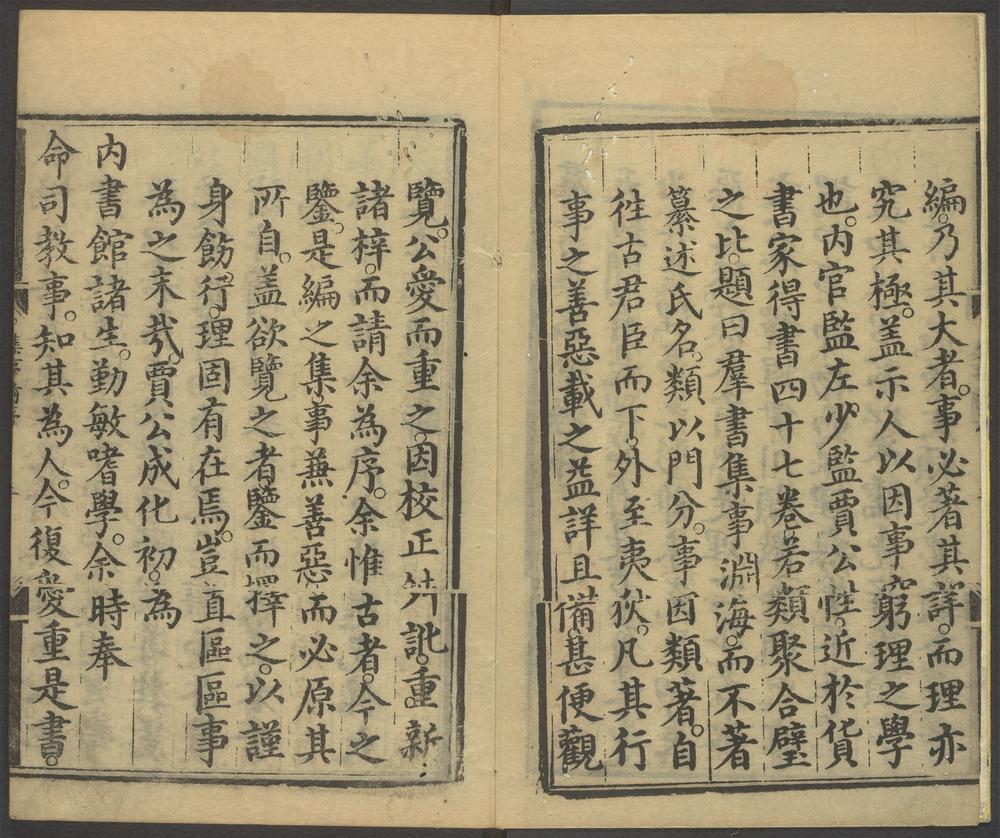 編。乃其大者。事必著其詳。而理亦
究其極。盖示人以因事窮理之學
也。内官監左少監賈公性。近於貨
書家得書四十七卷若類聚合璧
之比。題曰羣書集事淵海。而不著
纂述氏名。類以門分。事因類著。自
徃古君臣而下。外至夷狄。凡其行
事之善惡載之益詳且備。甚便觀
覽。公愛而重之。因校正舛訛。重新
諸梓。而請余為序。余惟古者。今之
鑒。是編之集事兼善惡。而必原其
所自。盖欲覽之者鑒而擇之。以謹
身飭行。理固有在焉。豈直區區事
為之末㢤。賈公成化初。為
内書館諸生。勤敏嗜學。余時奉
命司教事。知其為人。今復愛重是書。